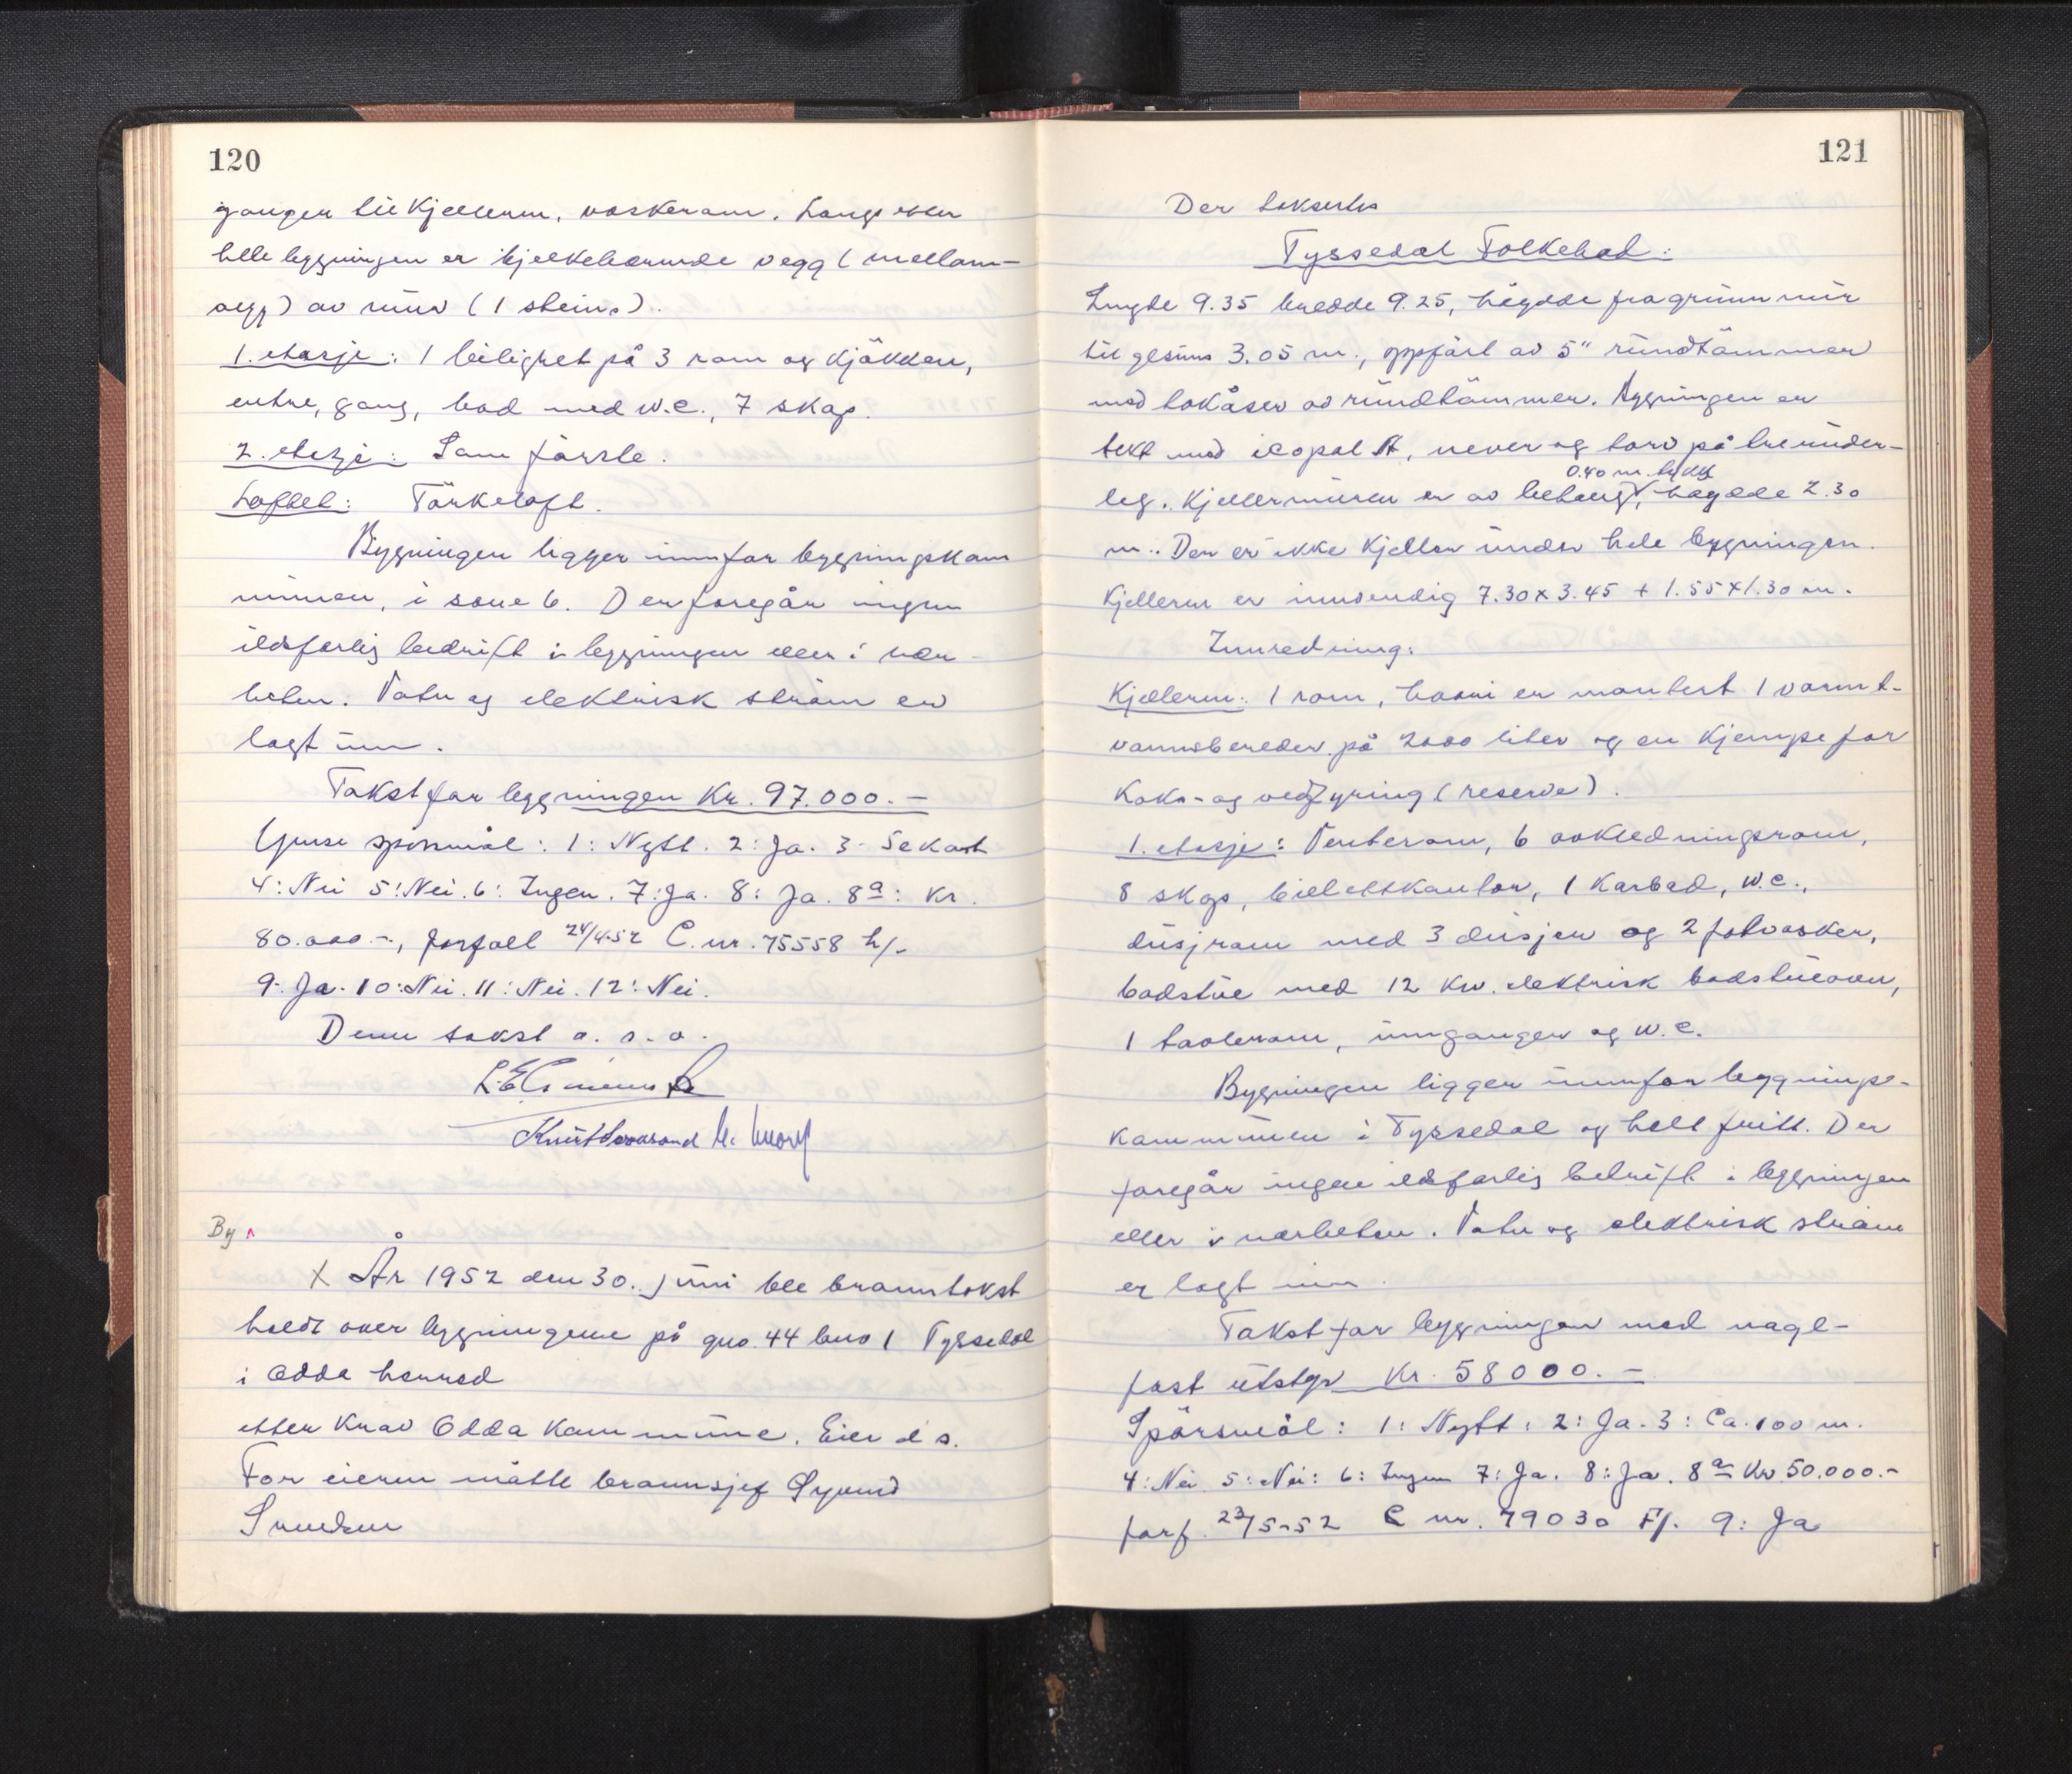 120
gangen til Kjelleren, vaskerom. Langs etter
hele bygningen er bjelkebærende vegg (mellom-
vegg) av mur (1 steins).
1. etasje: 1 leilighet på 3 rom og kjøkken,
entre, gang, bad med w.c., 7 skap.
2. etasje: Som første.
Loftet: Tørkeloft.
Bygningen ligger innfor bygningskom
munen, i sone 6. Der foregår ingen
ildsfarlig bedrift i bygningen eller i nær-
heten. Vatn og elektrisk strøm er
lagt inn.
Takst for bygningen Kr. 97.000.-
Ymse spörsmål: 1: Nytt. 2: Ja. 3. Sekast
4: Nei 5: Nei. 6: Ingen. 7: Ja. 8: Ja. 8a: Kr.
80.000.-, forfall 24/4-52 C. nr. 75558 h/-
9: Ja. 10: Nei. 11: Nei. 12: Nei.
Denne takst o. s. v.
By
X År 1952 den 30. juni ble branntakst
holdt over bygningene på gno. 44 bno 1 Tyssedal
i Odda herred
etter krav Odda Kommune. Eier d s.
For eieren møtte brannsjef
121
Der taksertes
Tyssedal Folkebad:
Lengde 9.35 bredde 9.25, høgdde fra grunnmur
til gesims 3.05 m., oppført av 5" rundtømmer
med takåser av rundtømmer. Bygningen er
tekt med icopal A, never og torv på treunder-
0.40 m. tykk
leg. Kjellermuren er av betong, høgdde 2.30
m.. Der er ikke Kjeller under hele bygningen.
Kjelleren er innvendig 7.30 x 3.45 + 1.55 x 1.30 m.
Innredning:
Kjelleren: 1 rom, hvori er montert 1 varmt-
vannsbereder på 2000 liter og en Kjempe for
Koks- og vedfyring (reserve).
1. etasje: Venterom, 6 avkledningsrom,
8 skap, billettkontor, 1 Karbad, w.c.,
dusjrom med 3 dusjer og 2 fotvasker,
badstue med 12 Kw. elektrisk badstueovn,
1 tavlerom, innganger og w.c.
Bygningen ligger innfor bygnings-
kommunen i Tyssedal og helt fritt. Der
foregår ingen ildsfarlig bedrift i bygningen
eller i nærheten. Vatn og elektrisk strøm
er lagt inn.
Takst for bygningen med nagl-
fast utstyr Kr. 58000.-
Spörsmål: 1: Nytt: 2: Ja. 3: Ca. 100 m.
4: Nei 5: Nei: 6: Ingen 7: Ja. 8: Ja. 8a Kr. 50.000.-
forf. 23/5-52 C nr. 79030 F/. 9: Ja